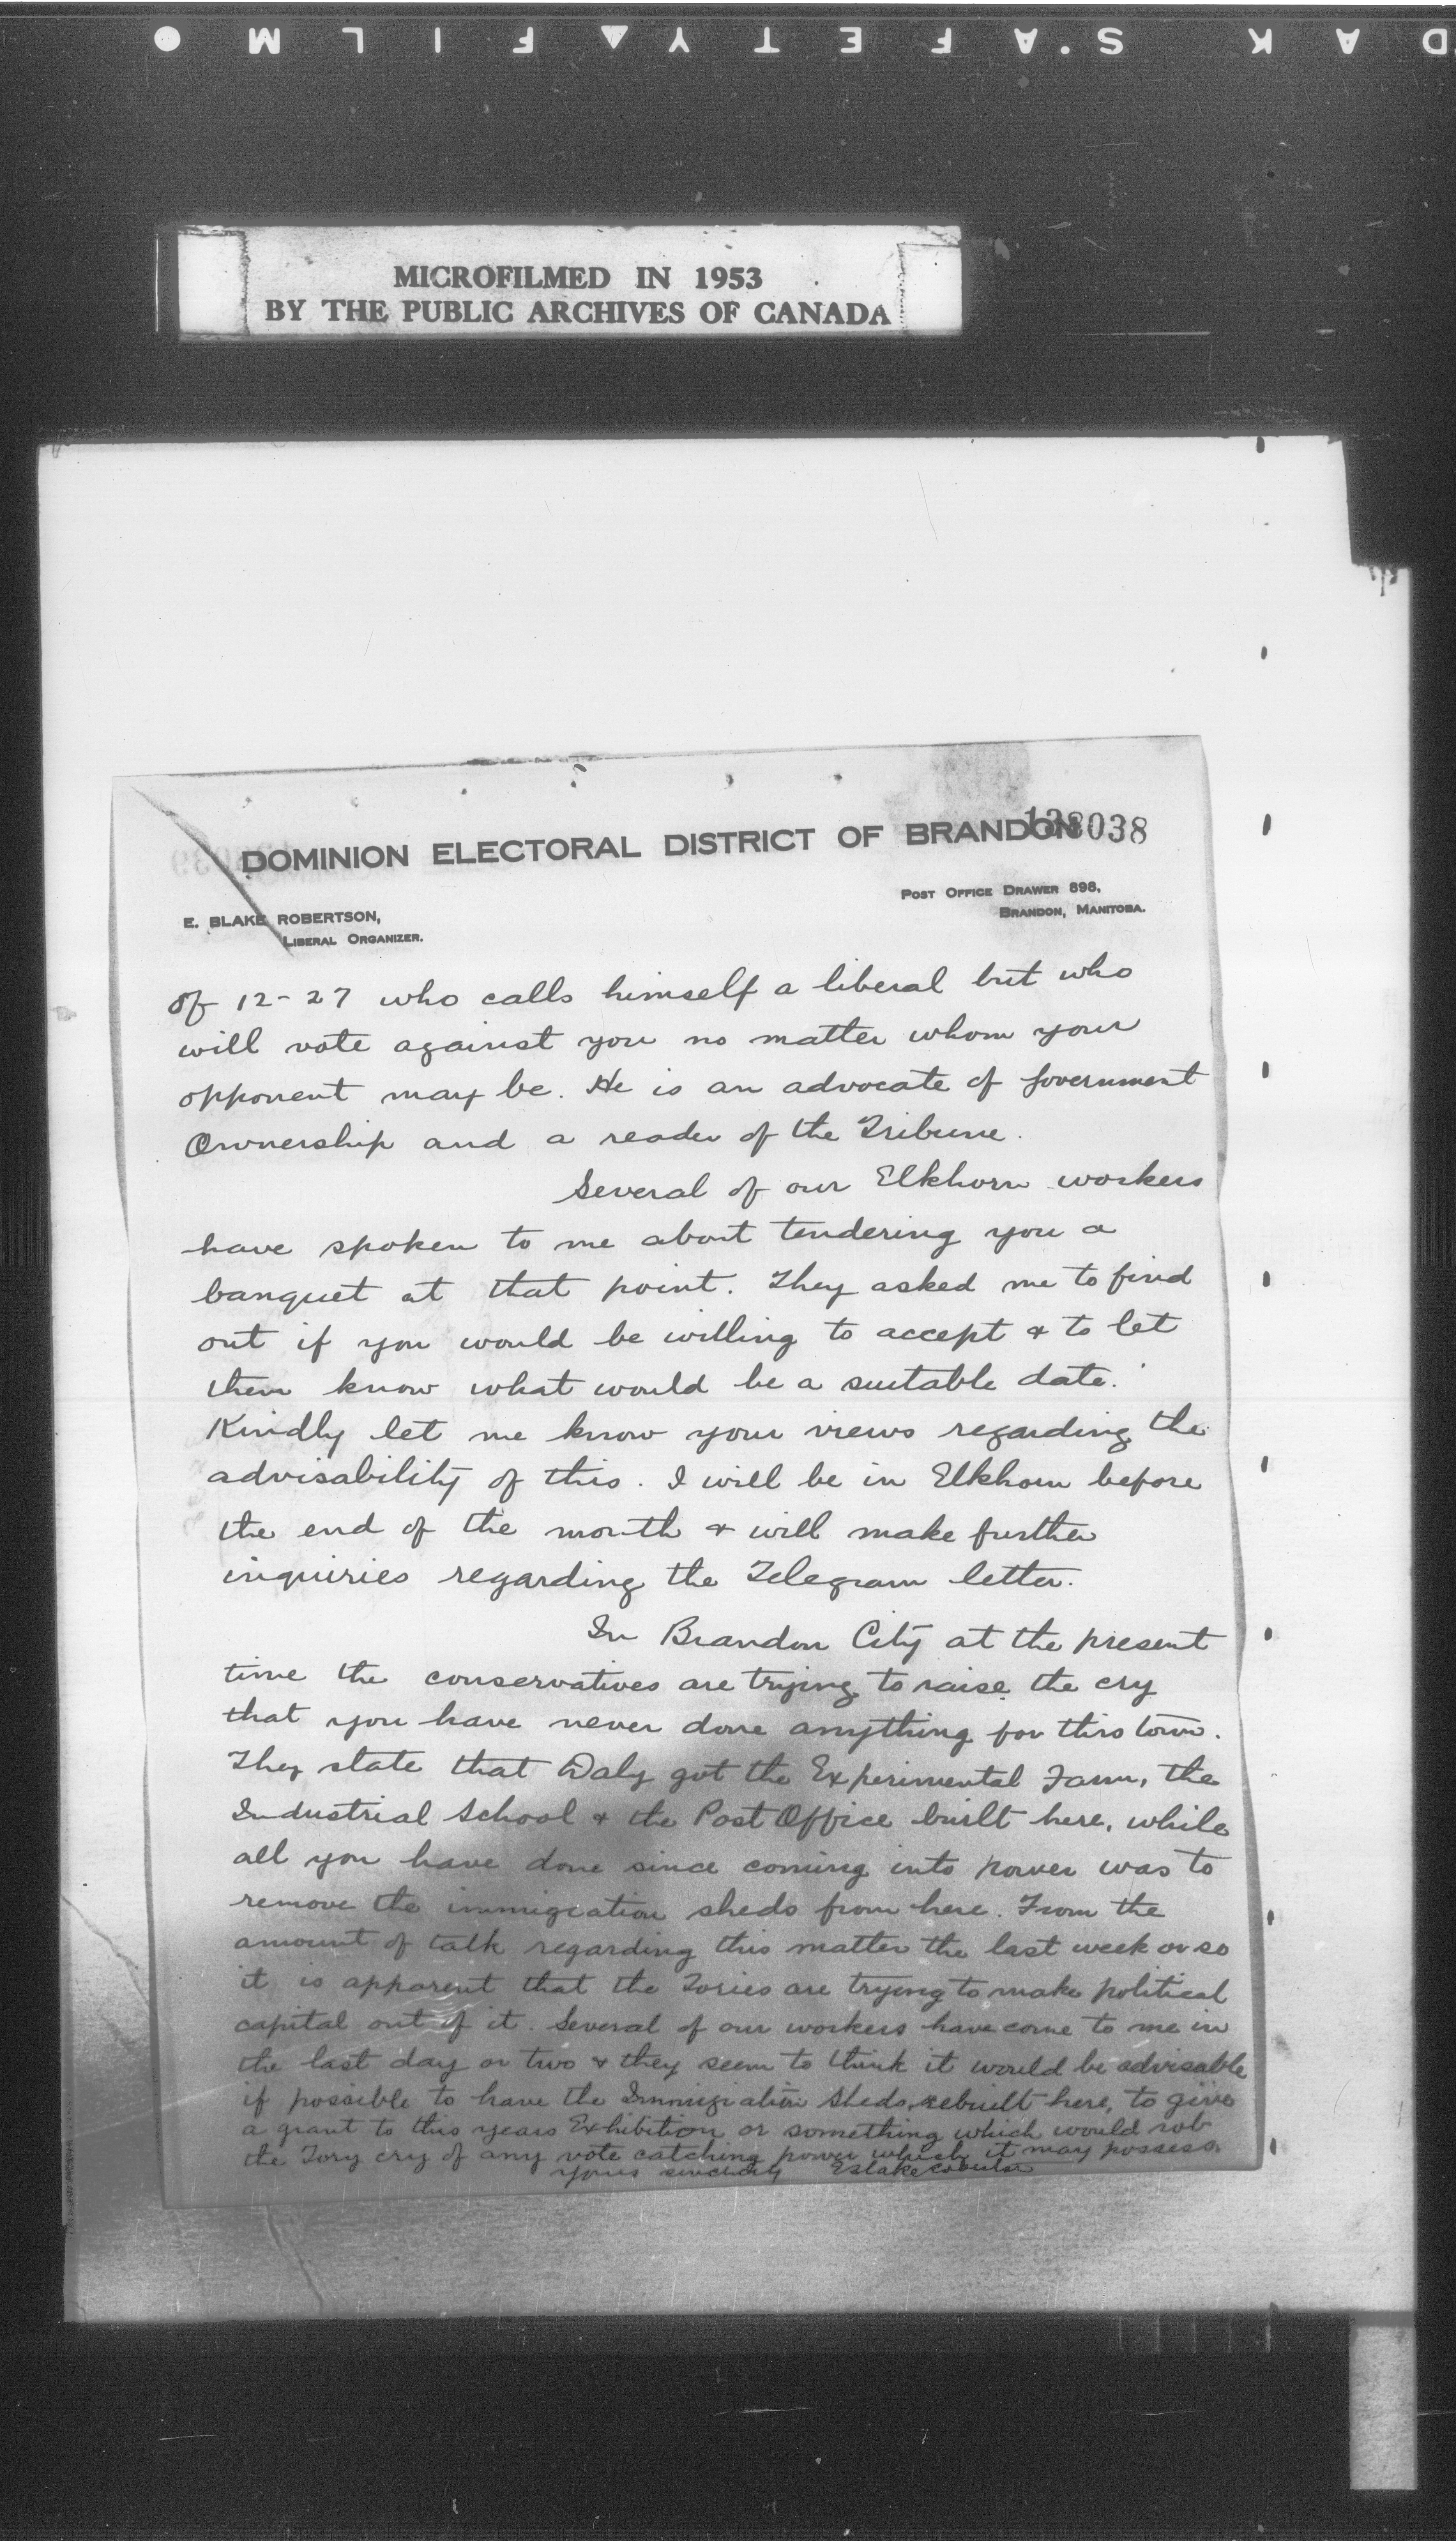 DAK S.AFETY▲FILM ●
MICROFILMED IN 1953
BY THE PUBLIC ARCHIVES OF CANADA
138038
DOMINION ELECTORAL DISTRICT OF BRANDON
POST OFFICE DRAWER 898,
BRANDON, MANITOBA.
E. BLAKE ROBERTSON,
LIBERAL ORGANIZER.
of 12-27 who calls himself a liberal but who
will vote against you no matter whom your
opponent may be. He is an advocate of Government
Ownership and a reader of the Tribune.
Several of our Elkhorn workers
have spoken to me about tendering you a
banquet at that point. They asked me to find
out if you would be willing to accept & to let
them know what would be a suitable date.
Kindly let me know your views regarding the
advisability of this. I will be in Elkhorn before
the end of the month & will make further
inquiries regarding the Telegram letter.
In Brandon City at the present
time the conservatives are trying to raise the cry
that you have never done anything for this town.
They state that Daly got the Experimental Farm, the
Industrial School & the Post Office built here, while
all you have done since coming into power was to
remove the immigration sheds from here. From the
amount of talk regarding this matter the last week or so
it is apparent that the Tories are trying to make political
capital out of it. Several of our workers have come to me in
the last day or two & they seem to think it would be advisable
if possible to have the Immigration Sheds rebuilt here, to give
a grant to this years Exhibition or something which would rob
the Tory cry of any vote catching power which it may possess.
yours sincerely EBlakeRobertson